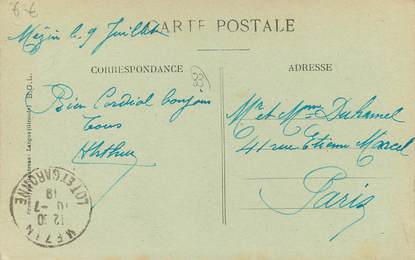 6-E
CARTE POSTALE
Mézin le 9 Juillet
CORRESPONDANCE
ADRESSE
88
Bien Cordial bonjour
Tous
Arthur
Mr et Mme Duhamel
41 rue Etienne Marcel
Paris
MEZIN
12 30
10-7
19
LOT ET GARONNE
B.G.L.